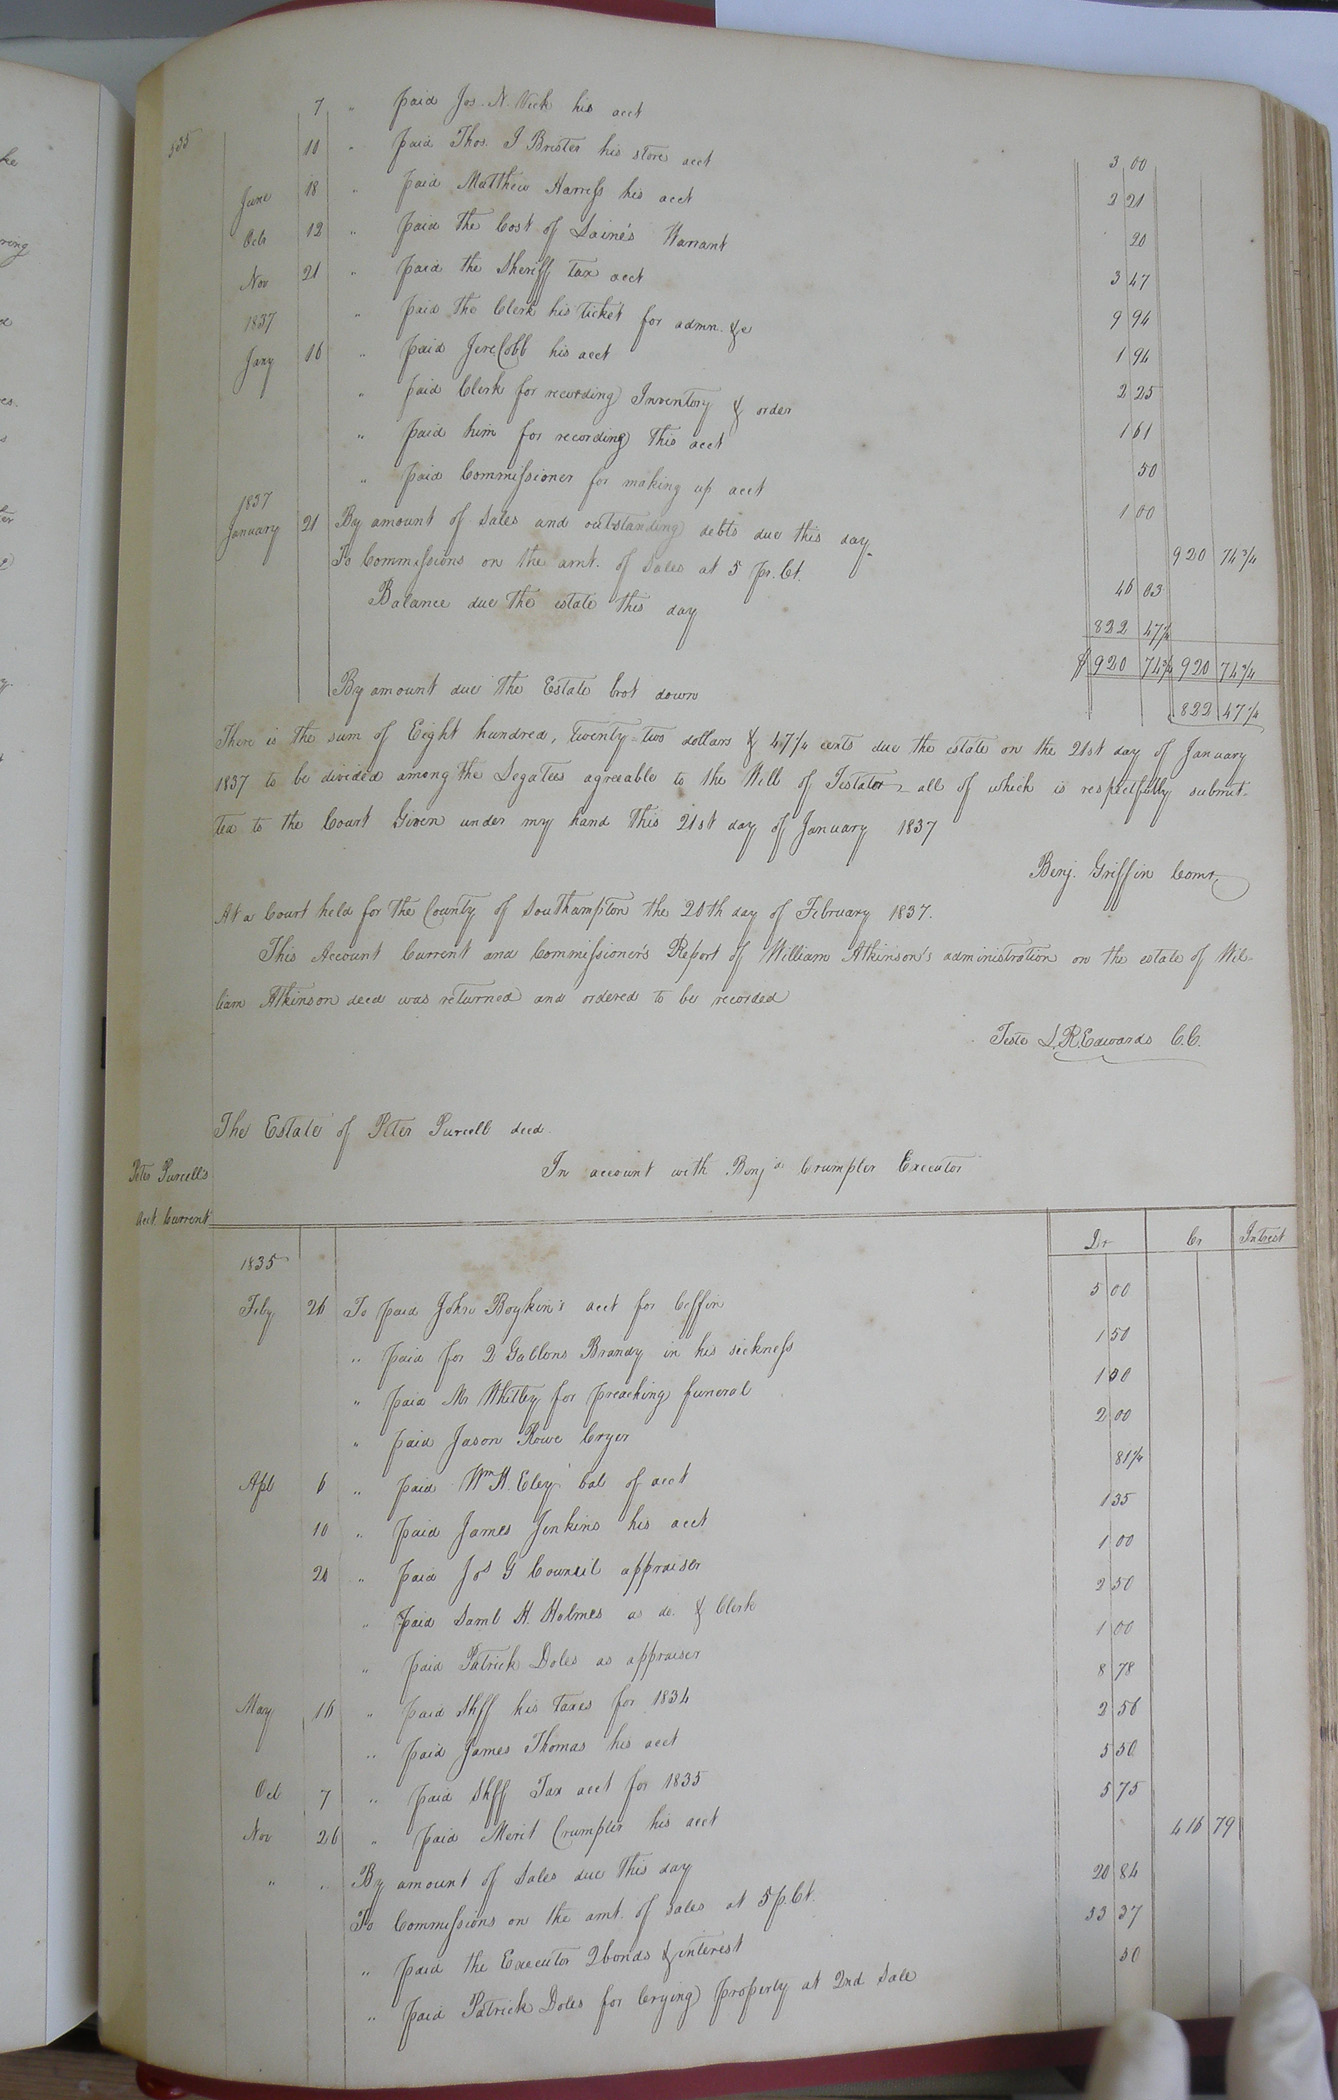 535
7 " paid Jos. N. Vick his acct 3 00
11 " paid Thos. J Brister his store acct 2 21
June 18 " paid Matthew Harress his acct 20
Octr 12 " paid the Cost of Laine's Warrant 3 47
Nov 21 " paid the Sheriff tax acct 9 94
1837 " paid the Clerk his ticket for admn. &c 1 94
Jany 16 " paid Jere Cobb his acct 2 25
" paid Clerk for recording Inventory & order 1 61
" paid him for recording this acct 50
" paid Commissioner for making up acct 1 00
1837
January 21 By amount of Sales and outstanding debts due this day 920 74 3/4
To Commissions on the amt. of Sales at 5 pr. Ct. 46 03
Balance due the estate this day 822 47 1/4
$ 920 74 3/4 920 74 3/4
By amount due the Estate brot down 822 47 1/4
There is the sum of Eight hundred, twenty=two dollars & 47 1/4 cents due the estate on the 21st day of January
1837 to be divided among the Legatees agreeable to the Will of Testator - all of which is respectfully submit-
ted to the Court Given under my hand this 21st day of January 1837
Benj. Griffin Comr.
At a Court held for the County of Southampton the 20th day of February 1837.
This Account Current and Commissioner's Report of William Atkinson's administration on the estate of Wil-
liam Atkinson decd was returned and ordered to be recorded
Teste L. R. Edwards C.C.
The Estate of Peter Purcell decd.
Peter Purcell's
acct Current
In account with Benja Crumpler Executor
Dr Cr Interest
1835
Feby 26 To paid John Boykin's acct for Coffin 5 00
" paid for 2 Gallons Brandy in his sickness 1 50
" paid Mr Whitley for preaching funeral 1 00
" paid Jason Rowe Cryer 2 00
Apl 6 " paid Wm H. Eley bal of acct 81 1/4
10 " paid James Jenkins his acct 1 35
20 " paid Jos G Council appraiser 1 00
" paid Saml H. Holmes as do. & Clerk 2 50
" paid Patrick Doles as appraiser 1 00
May 16 " paid Shff his taxes for 1834 8 78
" paid James Thomas his acct 2 56
Oct 7 " paid Shff Tax acct for 1835 5 50
Nov 26 " paid Merit Crumpler his acct 5 75
" " By amount of Sales due this day 416 79
To Commissions on the amt. of Sales at 5 p. Ct. 20 84
" paid the Executor 2 bonds & interest 53 37
" paid Patrick Doles for Crying property at 2nd Sale 50